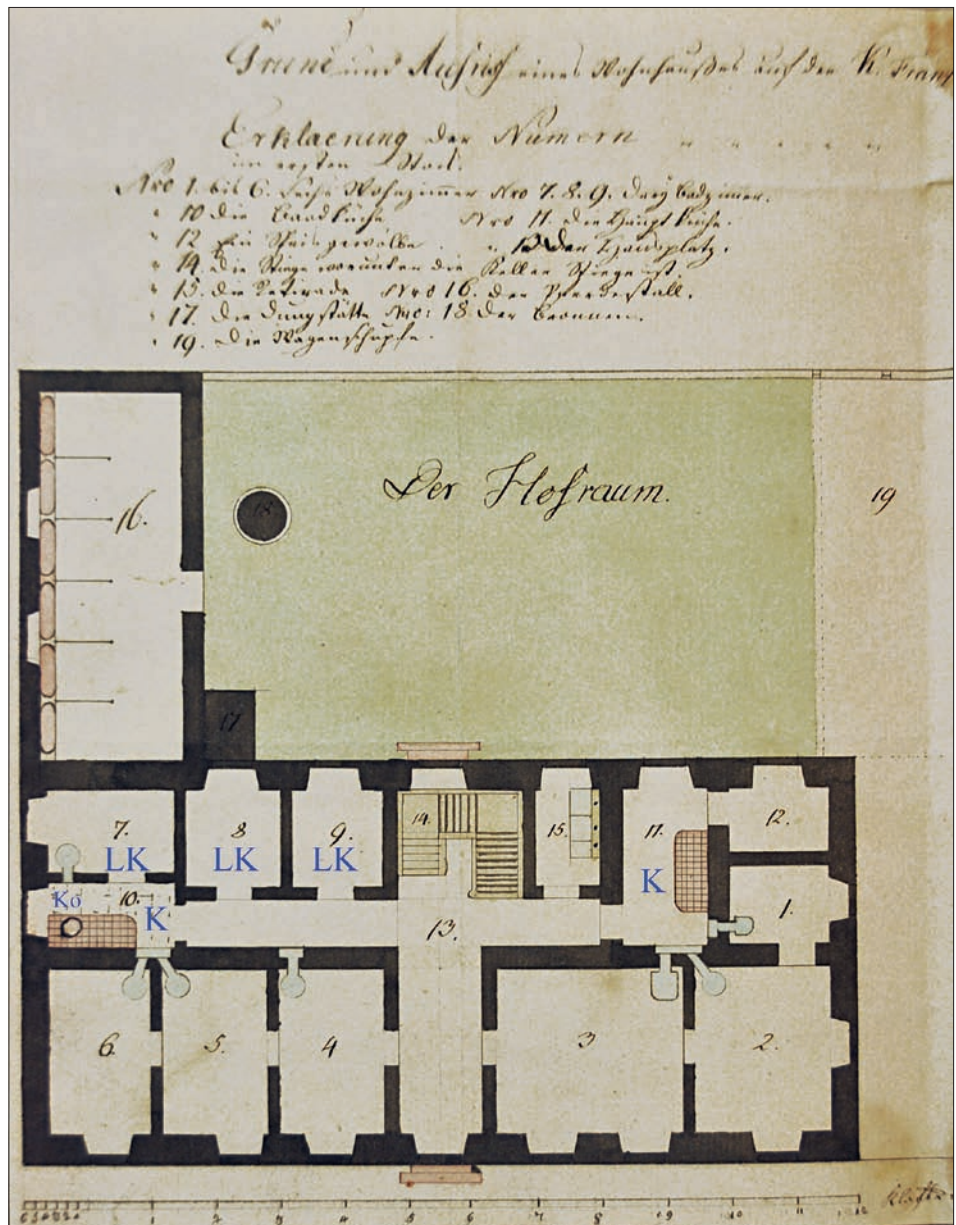 Grund und Aufriß eines Wohnhaußes auf der K. Franz
Erklaerung der Numern
im ersten Stock.
Nro 1. bis 6. sechs Wohnzimmer Nro 7. 8. 9. drey Badzimer.
" 10 die Baadküche Nro 11. die Haupt Küche.
" 12 Ein Speisgewölbe. " 13 der Hausplatz.
" 14. die Stiege worunter die Keller Stiege ist.
" 15. die Retirade Nro 16. der Pferdestall.
" 17. die Dungstätte Nro: 18 der Bronnen.
" 19. die Wagenschupfe.
Der Hofraum.
16.
18
19
17
7.
LK
8
LK
9.
LK
14.
15.
11.
K
12.
Ko
10.
K
13.
1.
6.
5.
4
3
2.
1 2 3 4 5 6 7 8 9 10 11 12
Klafter